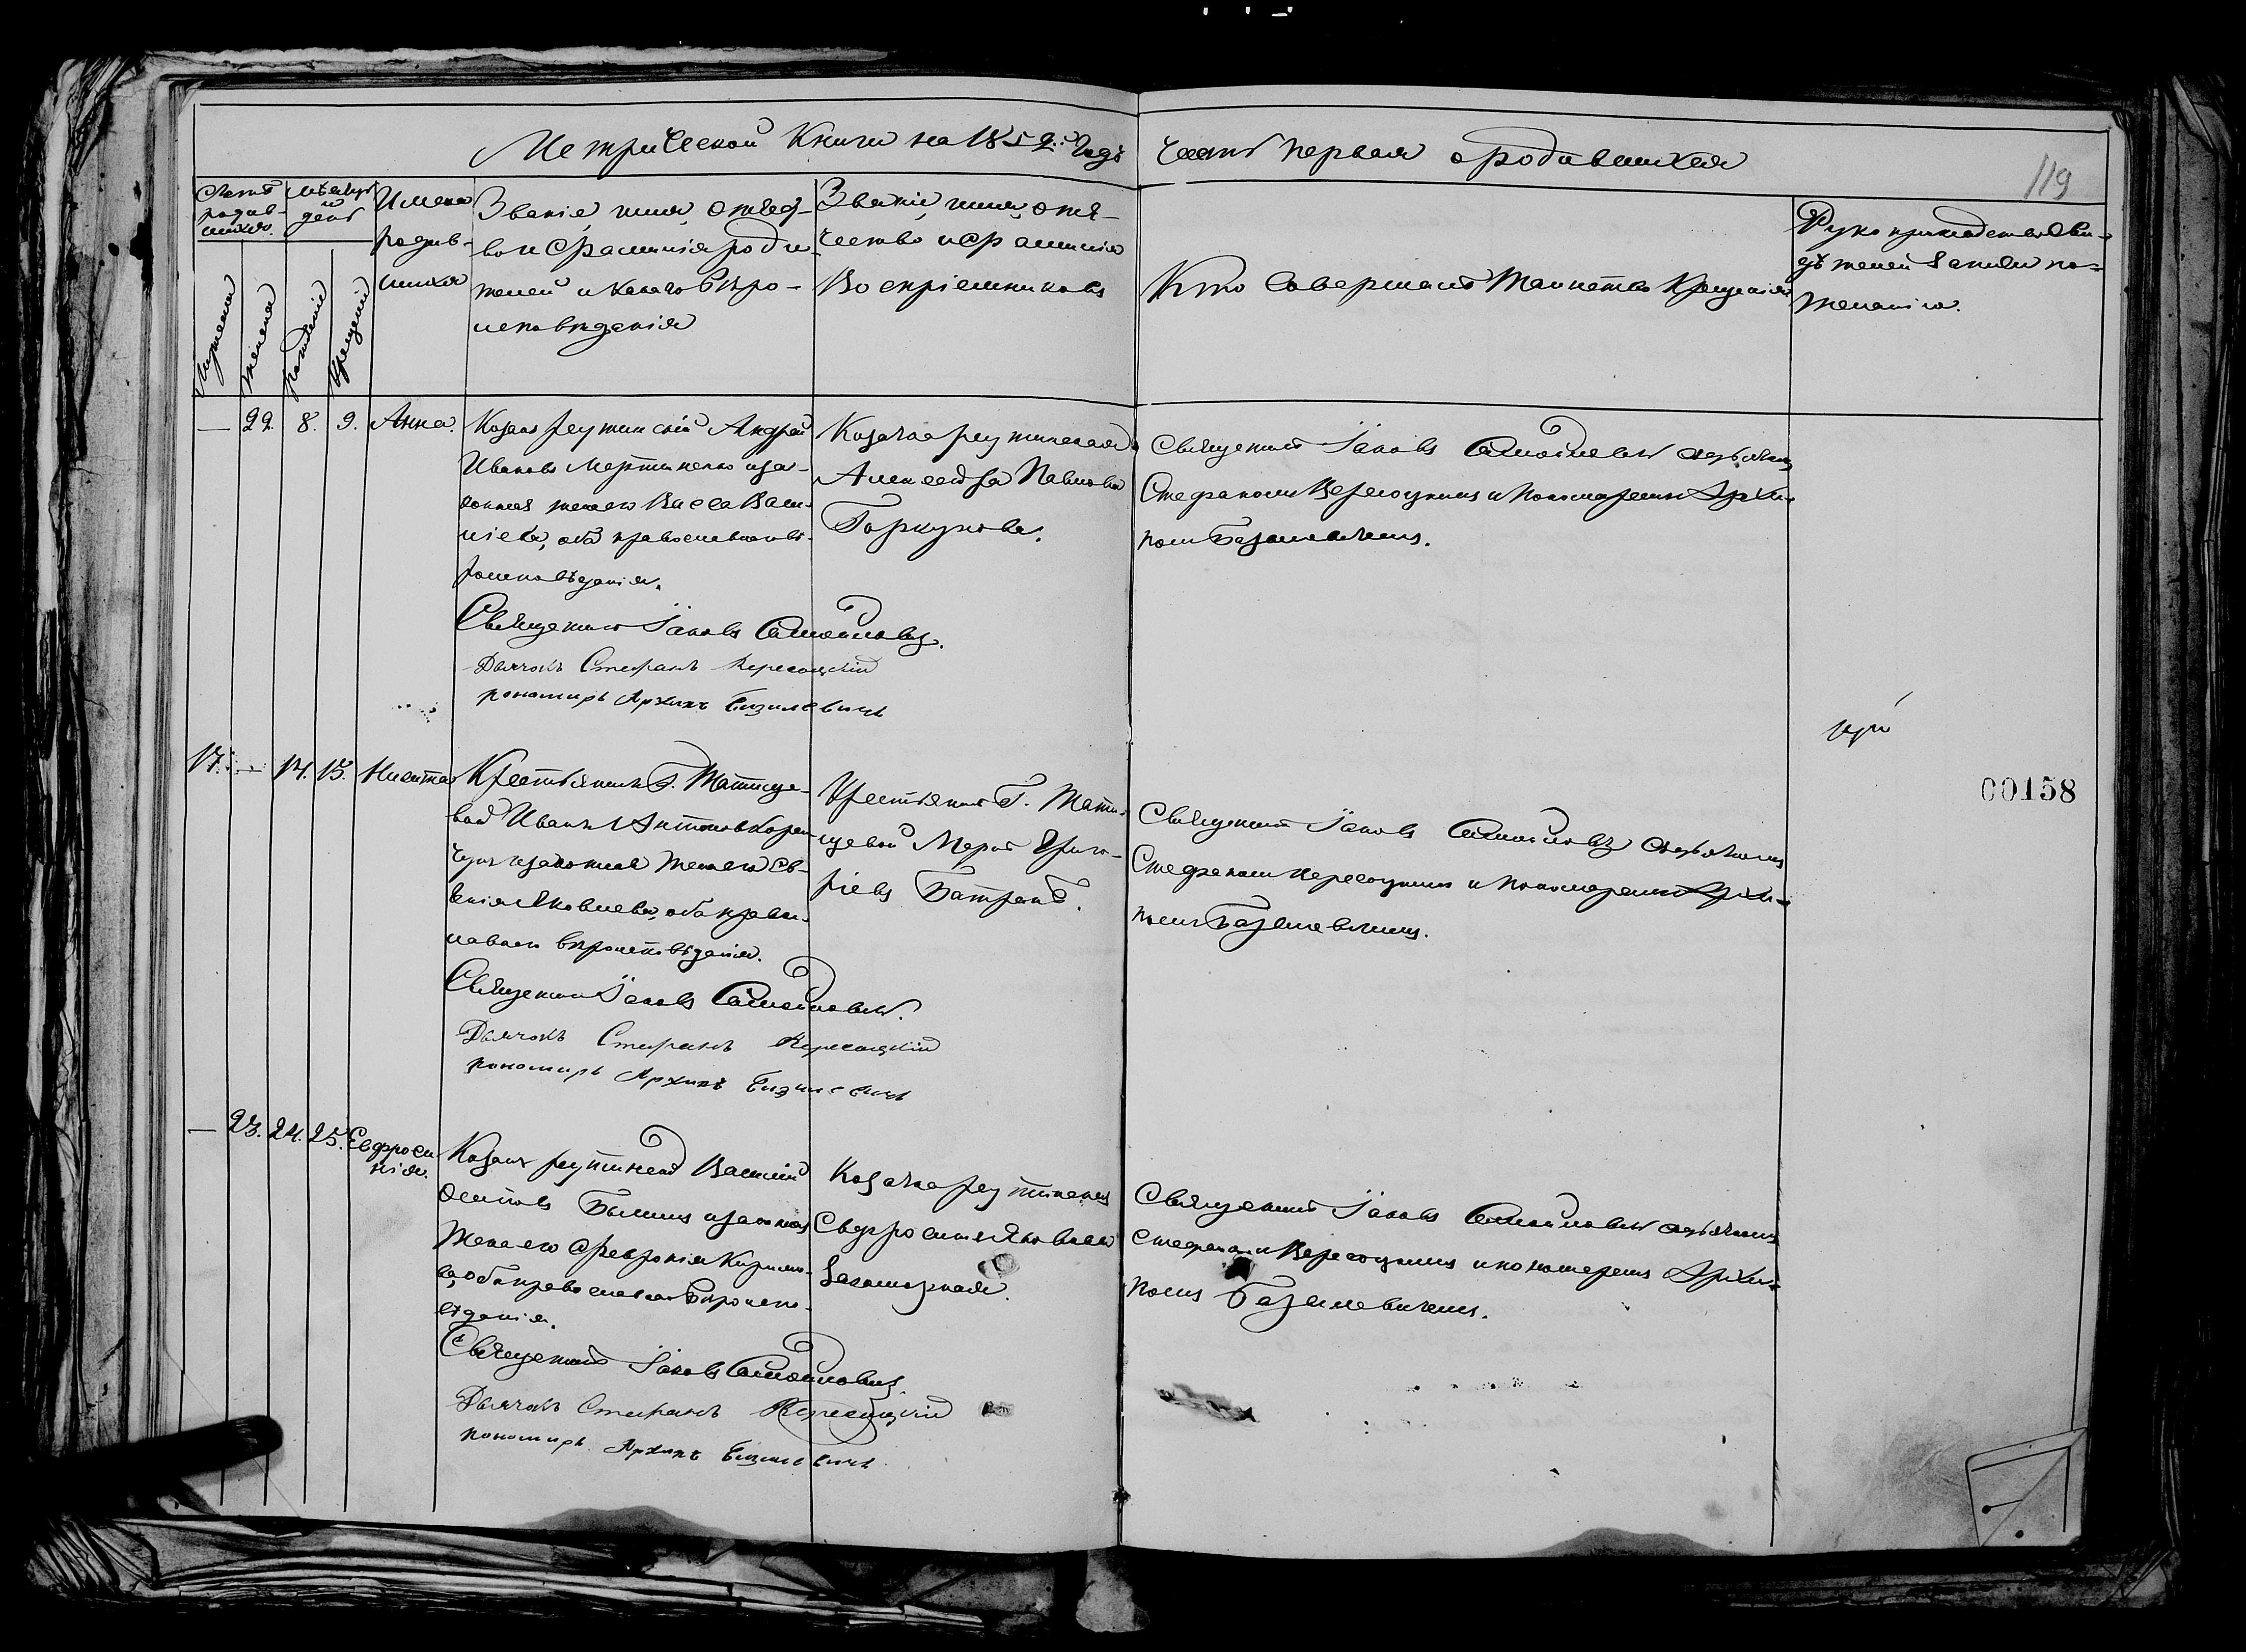 Метрической Книги на 1852й Годъ
Часть Первая о родившихся
119
Счетъ родив-
шихся.
Мѣсяцъ
и
день
Имена
родив-
шихся
Мужеска
женска
рожденія
крещенія
Званіе, имя, отчес-
во и фамилія роди-
телей и какого вѣро-
исповѣданія
Званіе, имя, отче-
чество и фамилія
Воспріемниковъ
Кто Совершалъ Таинство Крещенія
Рукоприкладство Сви-
дѣтелей записи по
Желанію.
— 22. 8. 9. Анна.
Козакъ реутинскій Андрей
Ивановъ Мартиненко и за-
конная жена его Васса Васи-
ліева, оба православнаго вѣ-
роисповѣданія.
Священникъ Іаковъ Самойловичъ.
Дьячокъ Стефанъ Кересоцкій
пономарь Архипъ Базилевичъ
Козачка реутинская
Александра Павлова
Горкунова.
Священникъ Іаковъ Самойловичъ съ дьячкомъ
Стефаномъ Кересоцкимъ и Пономаремъ Архи-
помъ Базилевичемъ.
17. — 14. 15. Никита
Крестьянинъ Г. Татище-
вой Иванъ Антоновъ
и законная жена его Ев-
генія Яковлева, оба право-
славнаго вѣроисповѣданія.
Священникъ Іаковъ Самойловичъ.
Дьячокъ Стефанъ Кересоцкій
пономарь Архипъ Базилевичъ
Крестьянинъ Г. Тати-
щевой Марко Григо-
ріевъ Батракъ.
Священникъ Іаковъ Самойловичъ съ дьячкомъ
Стефаномъ Кересоцкимъ и Пономаремъ Архи-
помъ Базилевичемъ.
00158
— 23. 24. 25. Евфроси
нія.
Козакъ реутинскій Василій
Осиповъ и законная
Жена его Февронія Кирило-
ва, оба православнаго Вѣроиспо-
вѣданія.
Священникъ Іаковъ Самойловичъ.
Дьячокъ Стефанъ Кересоцкій
пономарь Архипъ Базилевичъ
Козачка реутинская
Евфросинія Яковлева
Священникъ Іаковъ Самойловичъ съ дьячкомъ
Стефаномъ Кересоцкимъ и пономаремъ Архи-
помъ Базилевичемъ.